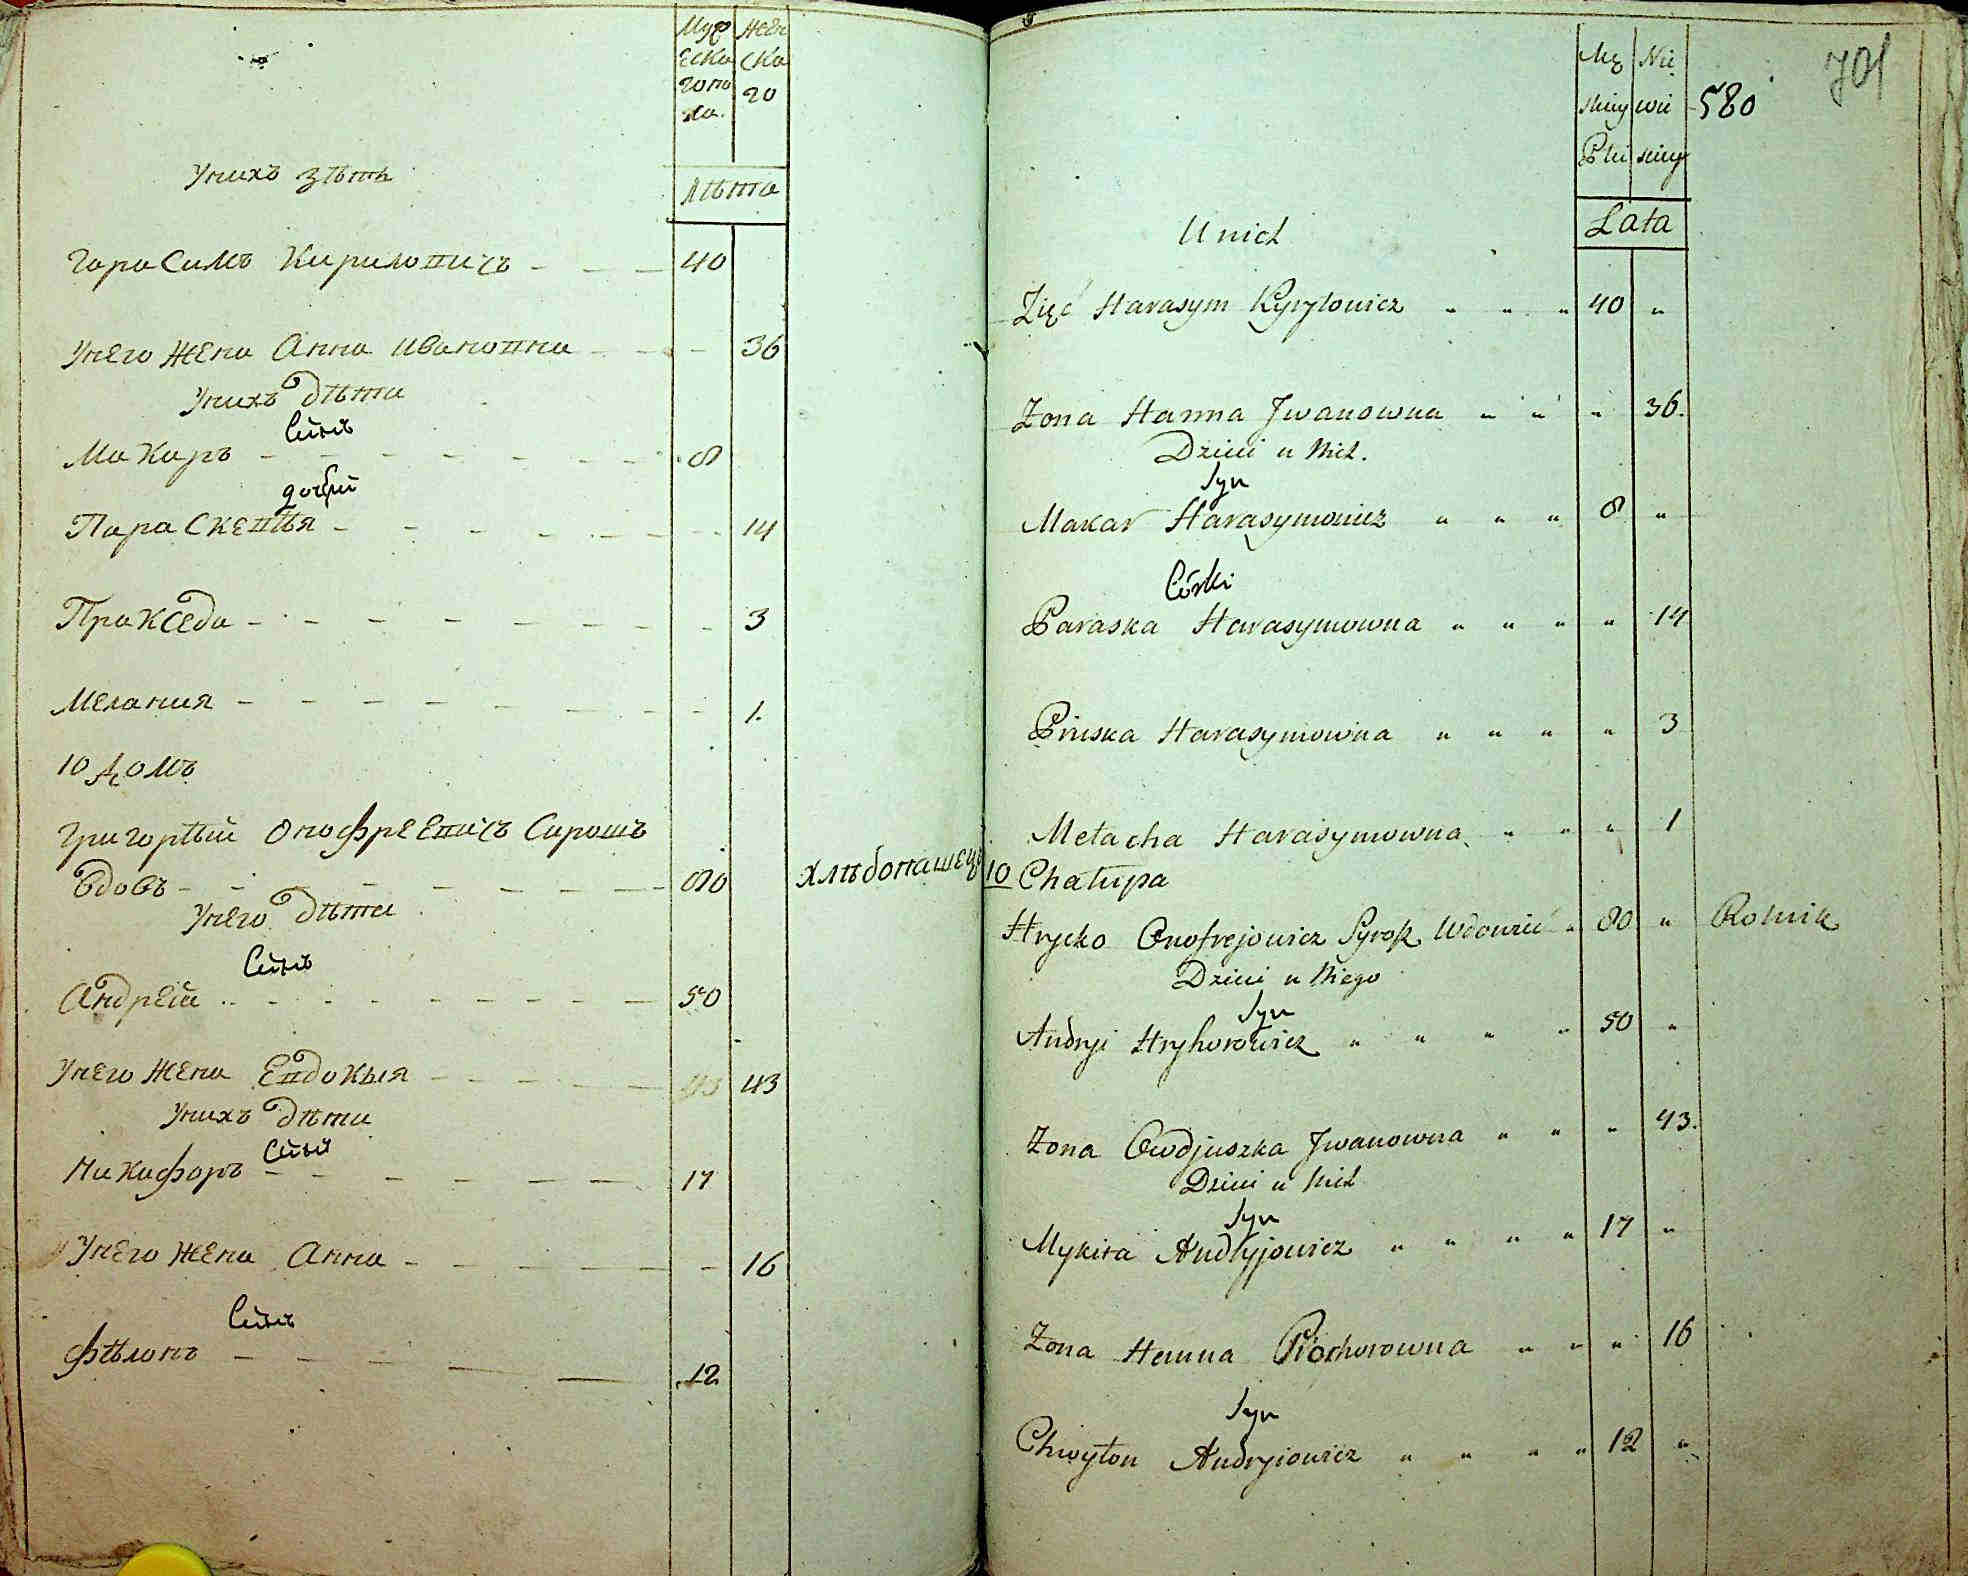 Мужескаго пола.
Женскаго
лѣта
Унихъ зѣть
Гарасимъ Кириловичъ - - - 40
Унего жена Анна Ивановна - - - 36
Унихъ дѣти
Сынъ
Макаръ - - - - - - - 8
дочери
Параскевѣя - - - - - - - 14
Пракседа - - - - - - - - - 3
Мелания - - - - - - - - - 1.
10 Домъ
Григорѣй Онофреевичъ Сирошъ
вдовъ - - - - - - - - 80 хлѣбопашецъ
Унего дѣти
Сынъ
Андрей - - - - - - - - - 50
Унего жена Евдокыя - - - - - 43
Унихъ дѣти
Сынъ
Никифоръ - - - - - - - 17
Унего жена Анна - - - - - - 16
Сынъ
Фѣлонъ - - - - - - 12
701
580
Męskiey Płci
Niewieskiey
Lata
U nich
Zięć Harasym Kyryłowicz " " " 40 "
Zona Hanna Jwanowna " " " 36.
Dzieci u Nich.
Syn
Makar Harasymowicz " " " 8 "
Córki
Paraska Harasymowna " " " " 14
Priska Harasymowna " " " " 3
Metacha Harasymowna " " " 1
10 Chałupa
Hrycko Onofrejowicz Syrosz Wdowiec " 80 " Rolnik
Dzieci u Niego
Syn
Andryi Hryhorowicz " " " " 50 "
Zona Owdjuszka Jwanowna " " " 43.
Dzieci u Nich
Syn
Mykita Andryjowicz " " " " 17 "
Zona Hanna Prochorowna " " " 16
Syn
Chwyłon Andryiowicz " " " " 12 "